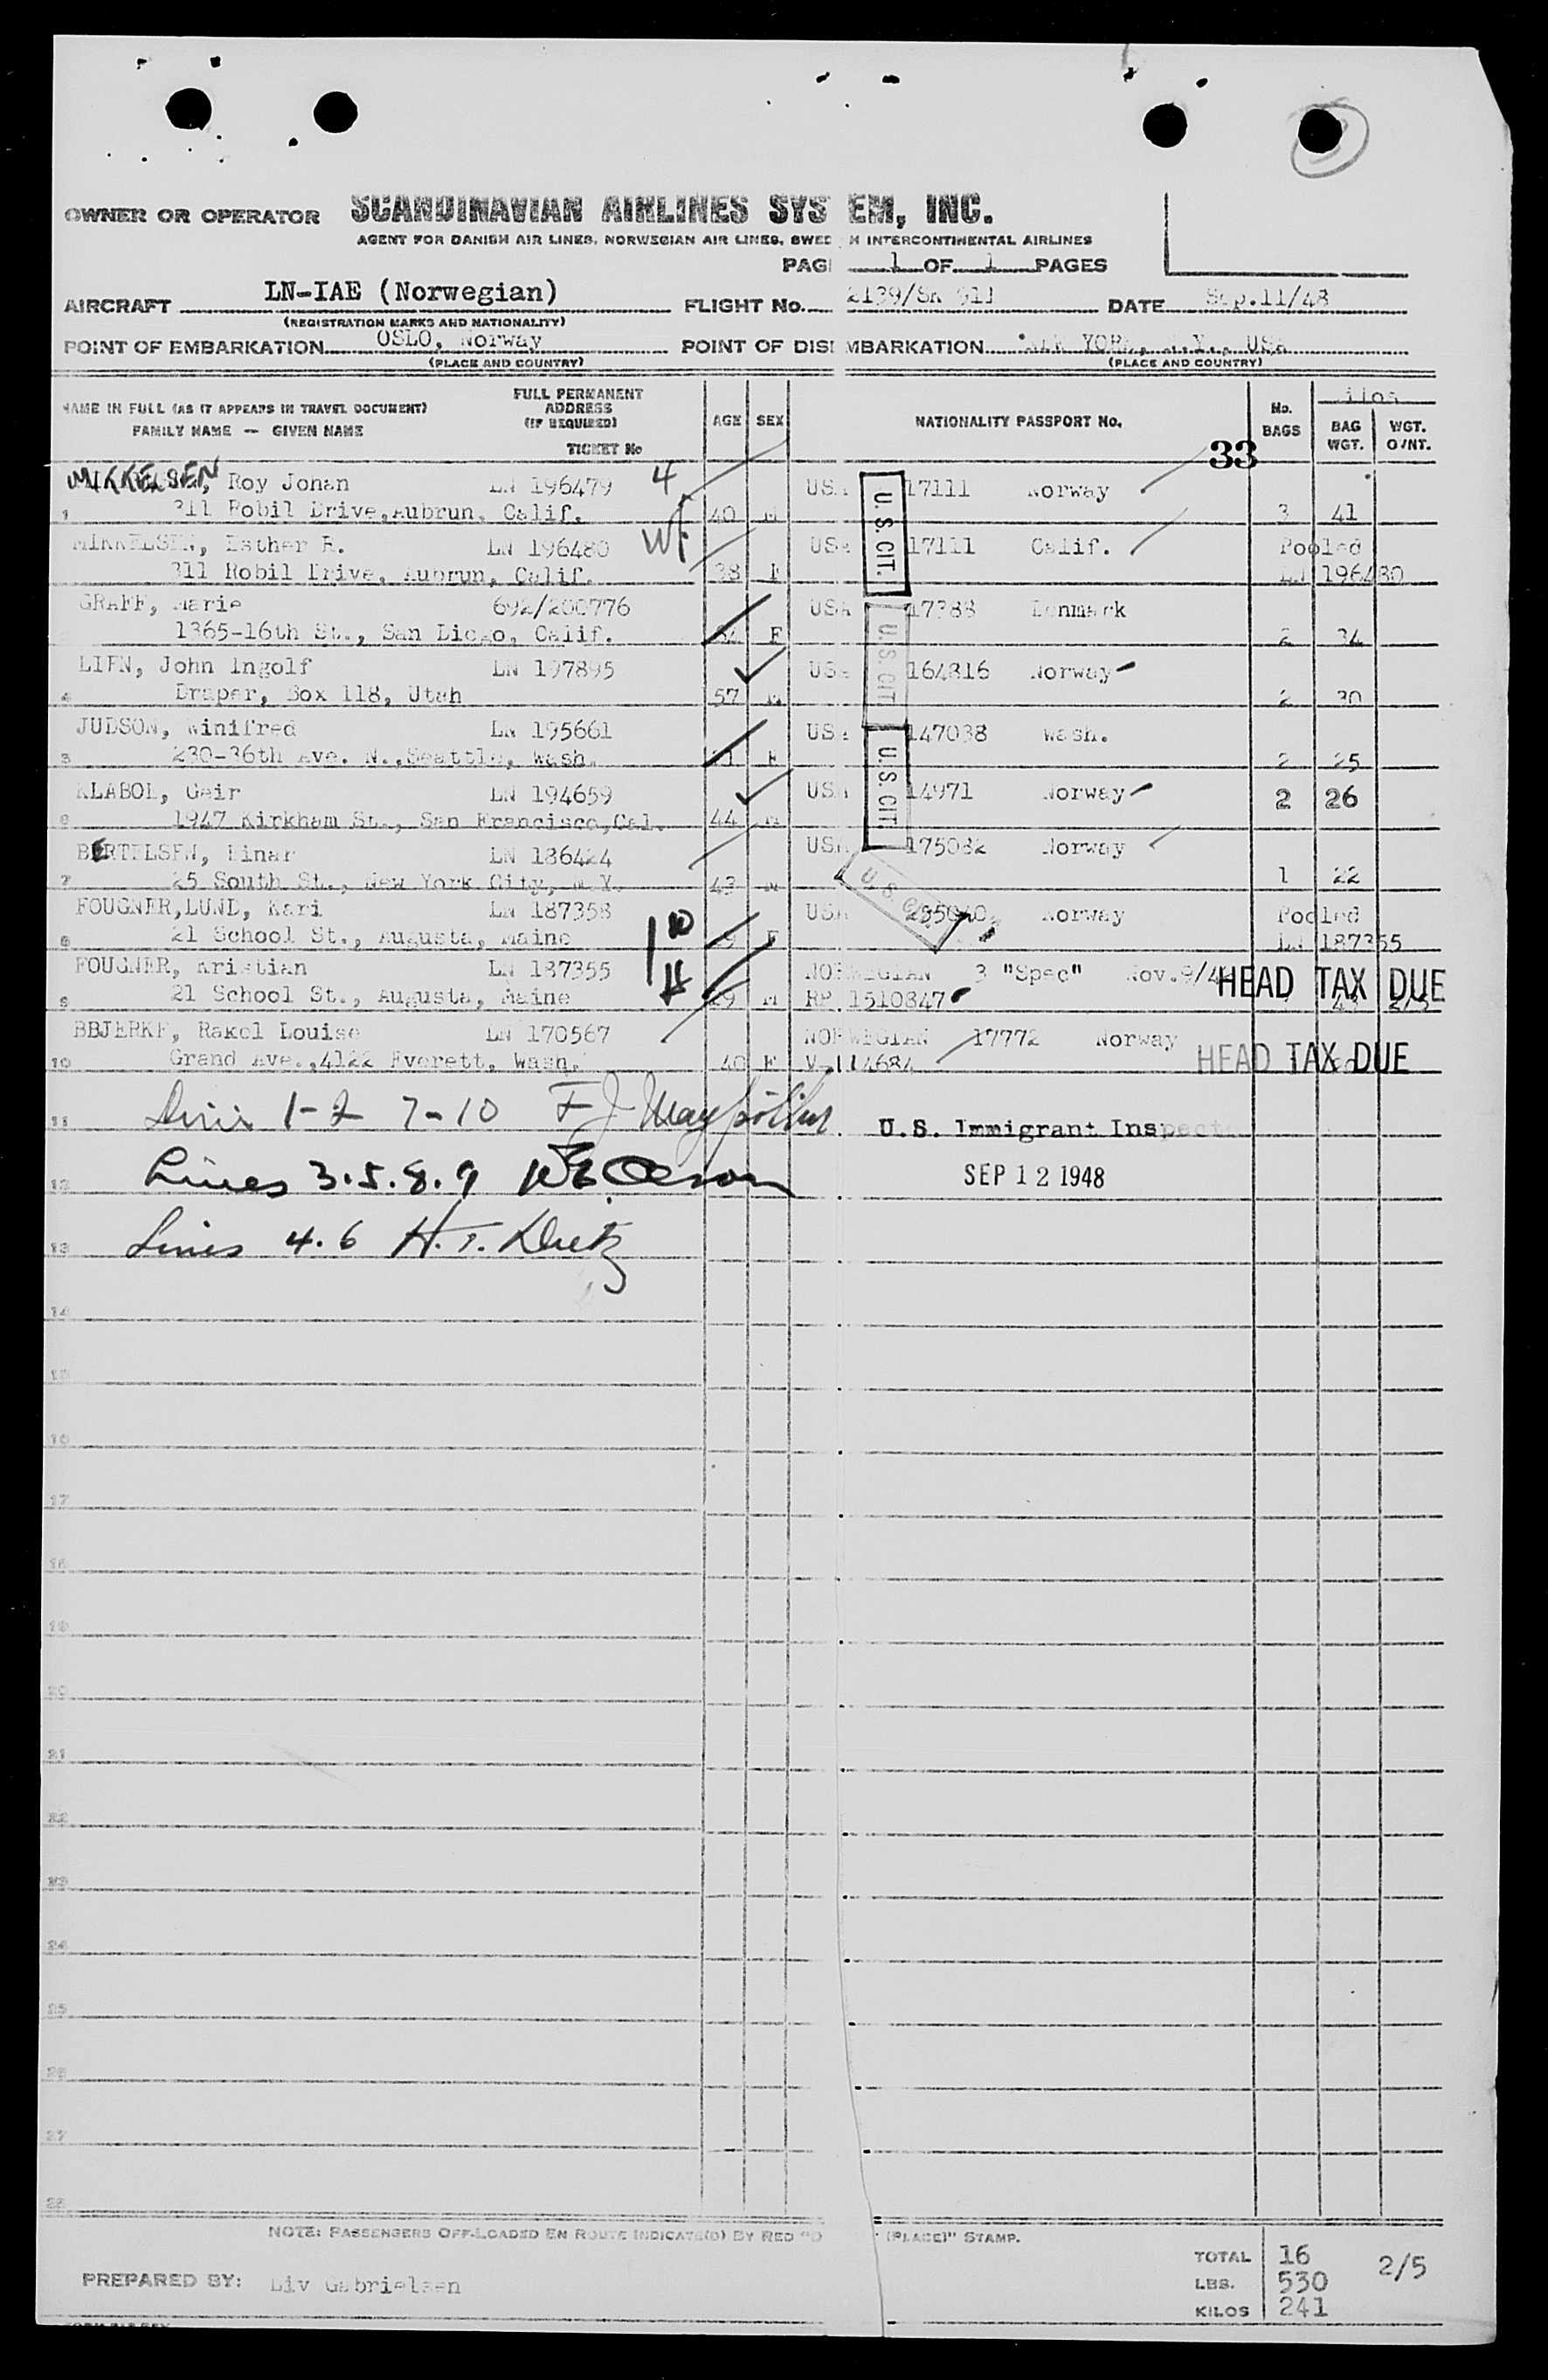 OWNER OR OPERATOR SCANDINAVIAN AIRLINES SYS EM, INC.
AGENT FOR DANISH AIR LINES, NORWEGIAN AIR LINES, SWED H INTERCONTINENTAL AIRLINES
PAG 1 OF 1 PAGES
AIRCRAFT LN-IAE (Norwegian) FLIGHT No. 2139/SK 911 DATE Sep.11/48
(REGISTRATION MARKS AND NATIONALITY)
POINT OF EMBARKATION OSLO, Norway POINT OF DISE MBARKATION NEW YORK, N.Y., USA
(PLACE AND COUNTRY) (PLACE AND COUNTRY)
NAME IN FULL (AS IT APPEARS IN TRAVEL DOCUMENT) FAMILY NAME — GIVEN NAME
FULL PERMANENT ADDRESS (IF REQUIRED) TICKET No
AGE SEX NATIONALITY PASSPORT No. No. BAGS BAG WGT. WGT. O/NT.
33
MIKKELSEN, Roy Johan LN 196479 4 USA 17111 Norway
1 311 Robil Drive,Aubrun, Calif. 40 M 3 41
MIKKELSEN, Esther R. LN 196480 Wf USA 17111 Calif. Pooled
311 Robil Drive, Aubrun, Calif. 38 F LN 196480
GRAFF, Marie 692/200776 USA 17388 Denmark
1365-16th St., San Diego, Calif. F 2 34
LIEN, John Ingolf LN 197895 USA 164816 Norway
4 Draper, Box 118, Utah 57 M 2 30
JUDSON, Winifred LN 195661 USA 147038 Wash.
5 230-36th Ave. N.,Seattle, Wash. F 2 25
KLABOL, Geir LN 194659 USA 14971 Norway 2 26
6 1947 Kirkham St., San Francisco,Cal. 44 M
BERTELSEN, Einar LN 186424 USA 175082 Norway
7 25 South St., New York City, N.Y. 43 M 1 22
FOUGNER,LUND, Kari LN 187358 USA Norway Pooled
8 21 School St., Augusta, Maine F LN 187355
FOUGNER, Kristian LN 187355 NORWEGIAN 3 "Spec" Nov.9/4
9 21 School St., Augusta, Maine 29 M RP 1510847
HEAD TAX DUE
BBJERKE, Rakel Louise LN 170567 NORWEGIAN 17772 Norway
10 Grand Ave.,4122 Everett, Wash. 40 F V-114684
HEAD TAX DUE
U.S. CIT.
U.S. CIT
U.S. CIT.
11 Lines 1-2 7-10 U.S. Immigrant Inspect
12 Lines 3.5.8.9 SEP 12 1948
13 Lines 4.6 H.T. Dietz
14
15
16
17
18
19
20
21
22
23
24
25
26
27
28
NOTE: PASSENGERS OFF-LOADED EN ROUTE INDICATE(D) BY RED "O (PLACE)" STAMP.
TOTAL 16 2/5
PREPARED BY: Liv Gabrielsen LBS. 530
KILOS 241